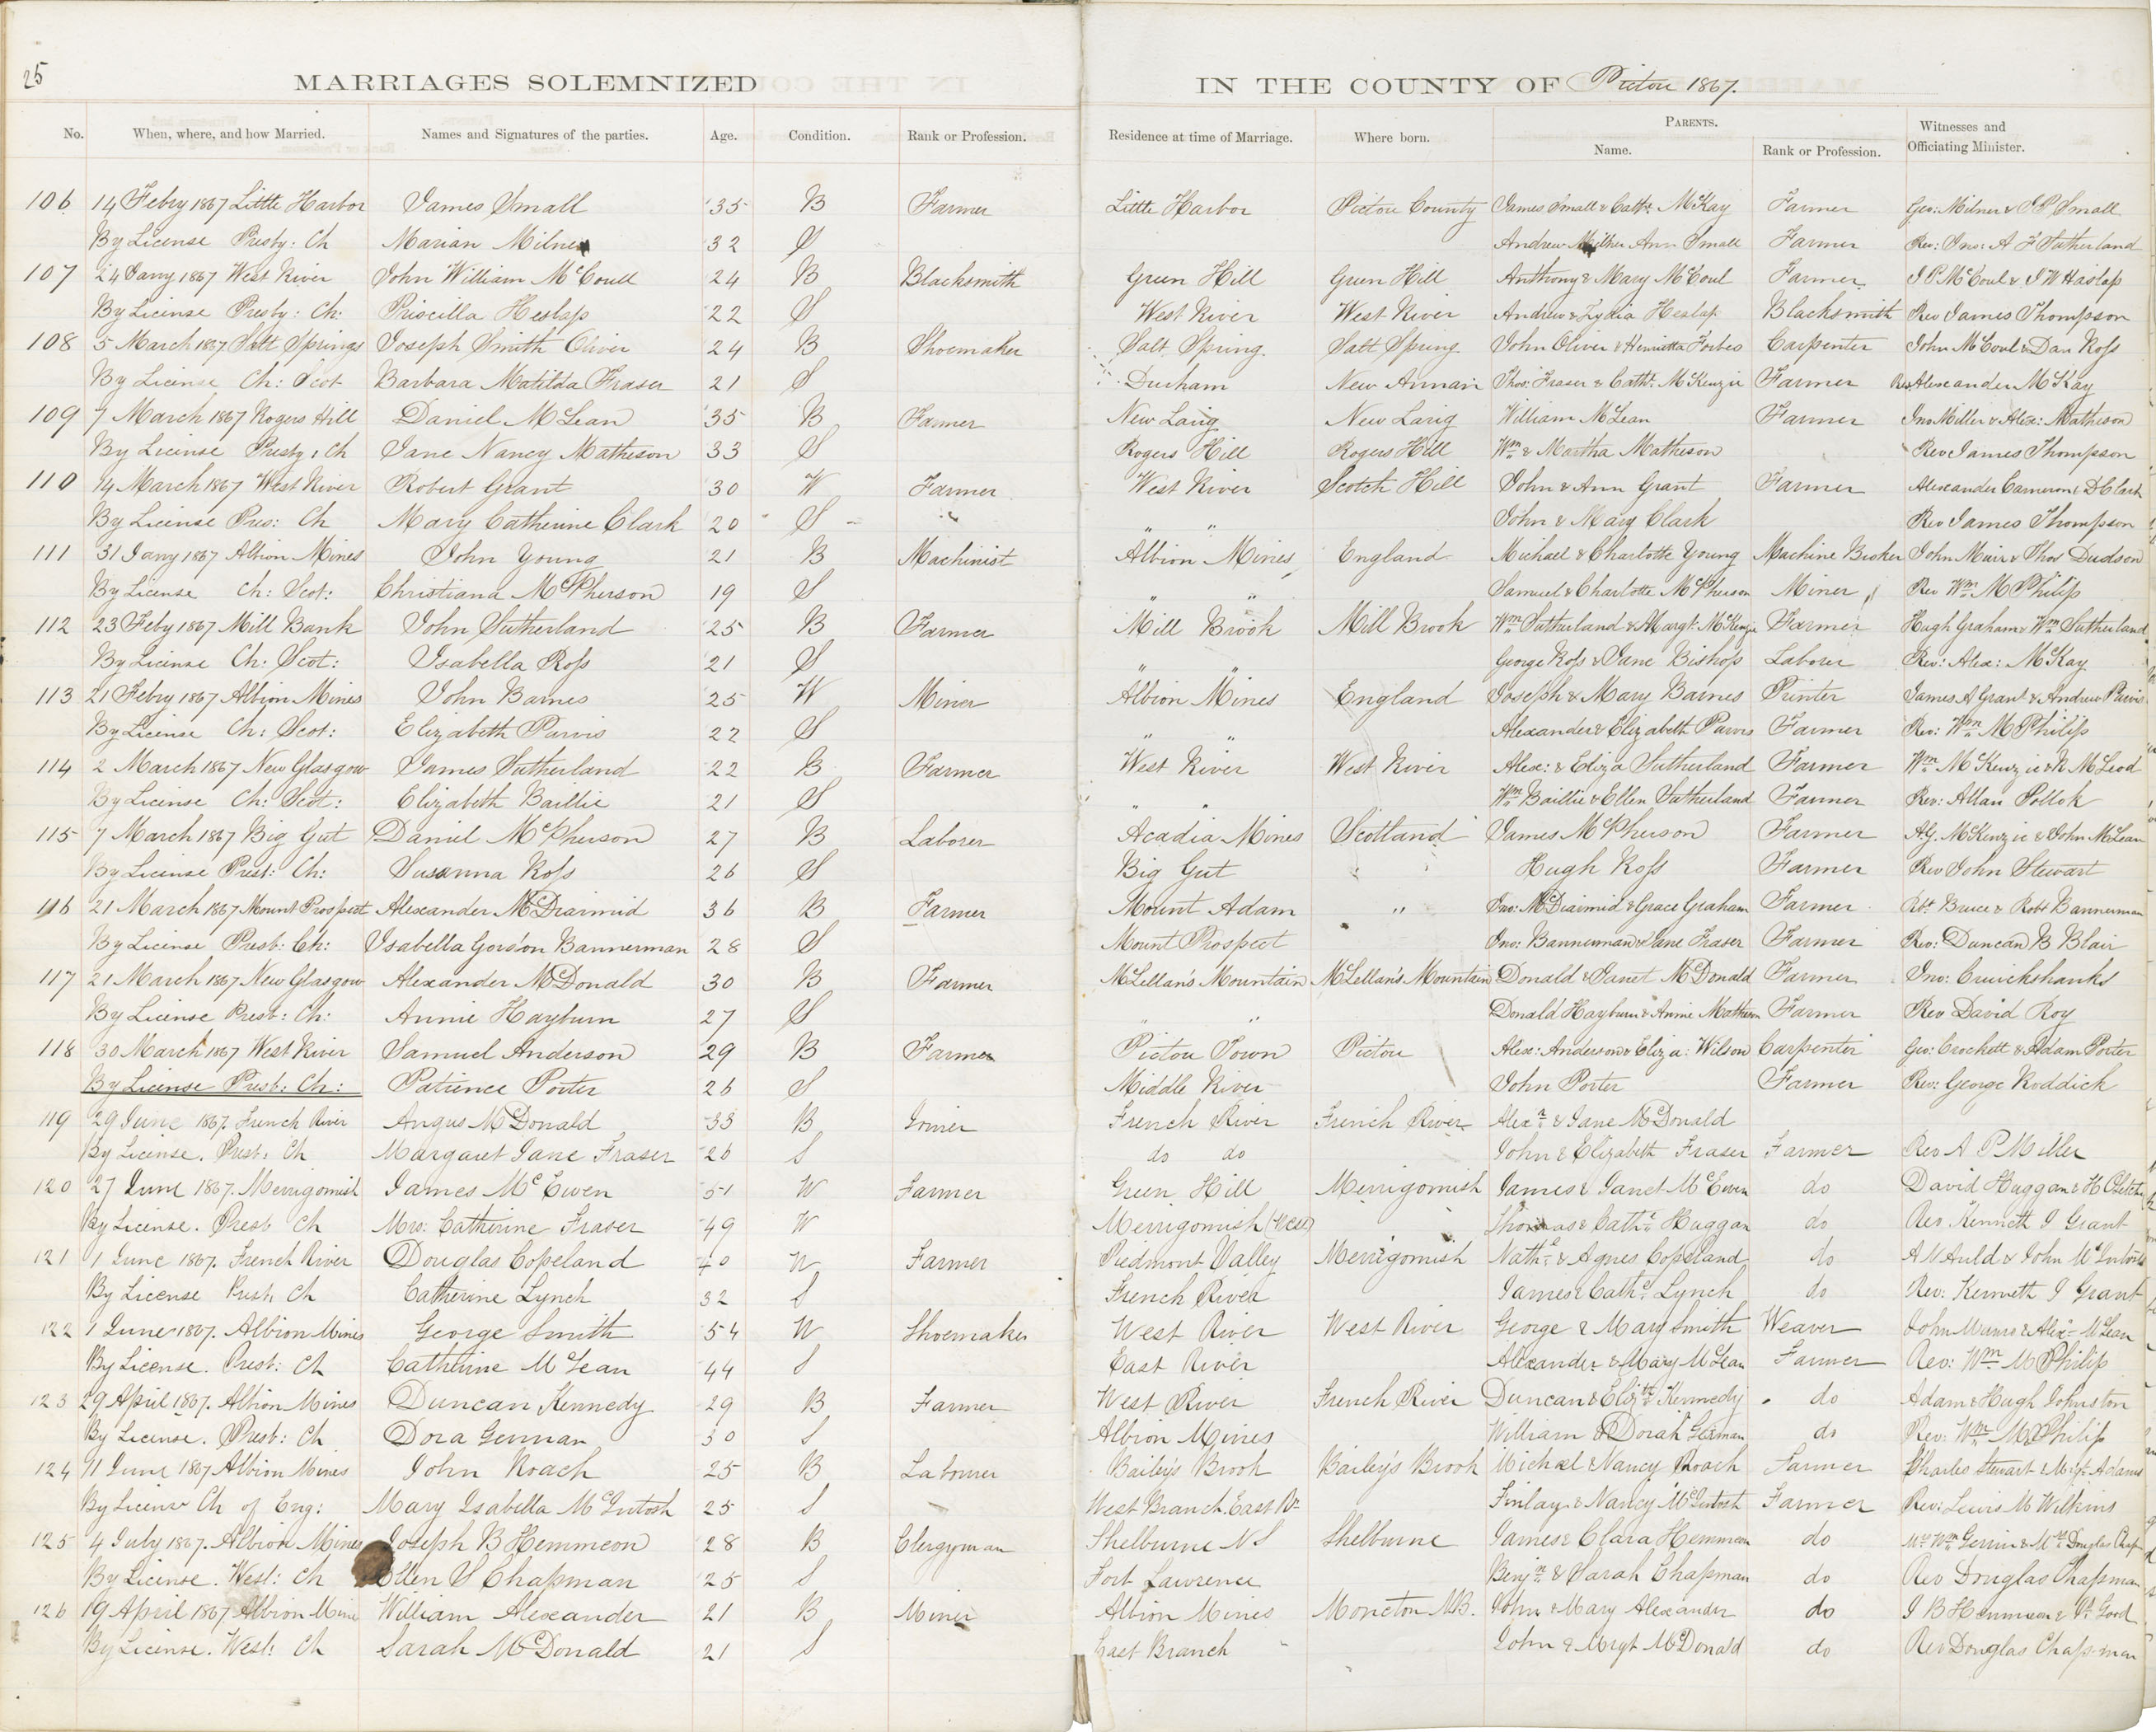 25
MARRIAGES SOLEMNIZED IN THE COUNTY OF Pictou 1867.
No. When, where, and how Married. Names and Signatures of the parties. Age. Condition. Rank or Profession. Residence at time of Marriage. Where born. PARENTS. Name. Rank or Profession. Witnesses and Officiating Minister.
106 14 Febry 1867 Little Harbor James Small 35 B Farmer Little Harbor Pictou County James Small & Cathe. McKay Farmer Geo: Milner & J P Small
By License Presby: Ch Marian Milner 32 S Andrew Milner Ann Small Farmer Rev: Jno: A F Sutherland
107 24 Jany 1867 West River John William McCoull 24 B Blacksmith Green Hill Green Hill Anthony & Mary McCoul Farmer J P McCoul & J W Haslap
By License Presby: Ch: Priscilla Heslap 22 S West River West River Andrew & Lydia Heslap Blacksmith Rev James Thompson
108 5 March 1867 Salt Springs Joseph Smith Oliver 24 B Shoemaker Salt Spring Salt Spring John Oliver & Henrietta Forbes Carpenter John McCoul & Dan Ross
By License Ch: Scot Barbara Matilda Fraser 21 S Durham New Annan Thos: Fraser & Cathe. McKenzie Farmer Rev Alexander McKay
109 7 March 1867 Rogers Hill Daniel McLean 35 B Farmer New Larig New Larig William McLean Farmer Jno Miller & Alex: Matheson
By License Presby: Ch Jane Nancy Matheson 33 S Rogers Hill Rogers Hill Wm & Martha Matheson Rev James Thompson
110 14 March 1867 West River Robert Grant 30 W Farmer West River Scotch Hill John & Ann Grant Farmer Alexander Cameron & D Clark
By License Pres: Ch Mary Catherine Clark 20 S " " John & Mary Clark Rev James Thompson
111 31 Jany 1867 Albion Mines John Young 21 B Machinist Albion Mines England Michael & Charlotte Young Machine John Muir & Thos Dudson
By License Ch: Scot: Christiana McPherson 19 S " " Samuel & Charlotte McPherson Miner Rev Wm McPhilip
112 23 Feby 1867 Mill Bank John Sutherland 25 B Farmer Mill Brook Mill Brook Wm Sutherland & Margt. McKenzie Farmer Hugh Graham & Wm Sutherland
By License Ch: Scot: Isabella Ross 21 S " " George Ross & Jane Bishop Laborer Rev: Alex: McKay
113 21 Febry 1867 Albion Mines John Barnes 25 W Miner Albion Mines England Joseph & Mary Barnes Printer James A Grant & Andrew Purvis
By License Ch: Scot: Elizabeth Purvis 22 S " " Alexander & Elizabeth Purvis Farmer Rev: Wm McPhilip
114 2 March 1867 New Glasgow James Sutherland 22 B Farmer West River West River Alex: & Eliza Sutherland Farmer Wm McKenzie & N McLeod
By License Ch: Scot: Elizabeth Baillie 21 S " " Wm Baillie & Ellen Sutherland Farmer Rev: Allan Pollok
115 7 March 1867 Big Gut Daniel McPherson 27 B Laborer Acadia Mines Scotland James McPherson Farmer A.G. McKenzie & John McLean
By License Prest: Ch: Susanna Ross 26 S Big Gut " " Hugh Ross Farmer Rev John Stewart
116 21 March 1867 Mount Prospect Alexander McDiarmid 36 B Farmer Mount Adam " Jno: McDiarmid & Grace Graham Farmer Robt Bruce & Robt Bannerman
By License Presb: Ch: Isabella Gordon Bannerman 28 S Mount Prospect Jno: Bannerman & Jane Fraser Farmer Rev: Duncan B Blair
117 21 March 1867 New Glasgow Alexander McDonald 30 B Farmer McLellan's Mountain McLellan's Mountain Donald & Janet McDonald Farmer Jno: Cruickshanks
By License Presb: Ch: Annie Hayburn 27 S " " Donald Hayburn & Annie Matheson Farmer Rev David Roy
118 30 March 1867 West River Samuel Anderson 29 B Farmer Pictou Town Pictou Alex: Anderson & Eliza: Wilson Carpenter Geo: Crockett & Adam Porter
By License Presb: Ch: Patience Porter 26 S Middle River John Porter Farmer Rev: George Roddick
119 29 June 1867. French River Angus McDonald 33 B Joiner French River French River Alexr & Jane McDonald
By License. Prest: Ch Margaret Jane Fraser 26 S do do John & Elizabeth Fraser Farmer Rev A P Miller
120 27 June 1867. Merrigomish James McEwen 51 W Farmer Green Hill Merrigomish James & Janet McEwen do David Huggan &
By License. Presb Ch Mrs: Catherine Fraser 49 W Merrigomish (West) Thomas & Cathe Huggan do Rev Kenneth J Grant
121 1 June 1867. French River Douglas Copeland 40 W Farmer Piedmont Valley Merrigomish Nathl & Agnes Copeland do A N Auld & John McIntosh
By License Presb Ch Catherine Lynch 32 S French River James & Cathe Lynch do Rev: Kenneth J Grant
122 1 June 1867. Albion Mines George Smith 54 W Shoemaker West River West River George & Mary Smith Weaver John Munro & Alexr McLean
By License. Prest: Ch Catherine McLean 44 S East River Alexander & Mary McLean Farmer Rev: Wm McPhilip
123 29 April 1867. Albion Mines Duncan Kennedy 29 B Farmer West River French River Duncan & Elizth Kennedy do Adam & Hugh Johnston
By License. Presb: Ch Dora German 30 S Albion Mines William & Dorah German do Rev: Wm McPhilip
124 11 June 1867 Albion Mines John Roach 25 B Labourer Bailey's Brook Bailey's Brook Michael & Nancy Roach Farmer Charles Stewart & Mgt. Adams
By License Ch of Eng: Mary Isabella McIntosh 25 S West Branch East Rr Finlay & Nancy McIntosh Farmer Rev: Lewis M Wilkins
125 4 July 1867. Albion Mines Joseph B Hemmeon 28 B Clergyman Shelburne N S Shelburne James & Clara Hemmeon do
By License. West: Ch Ellen S Chapman 25 S Fort Lawrence Benjn & Sarah Chapman do Rev Douglas Chapman
126 19 April 1867 Albion Mine William Alexander 21 B Miner Albion Mines Moncton N.B. John & Mary Alexander do J B Hemmeon &
By License. West: Ch Sarah McDonald 21 S East Branch John & Mrgt McDonald do Rev Douglas Chapman